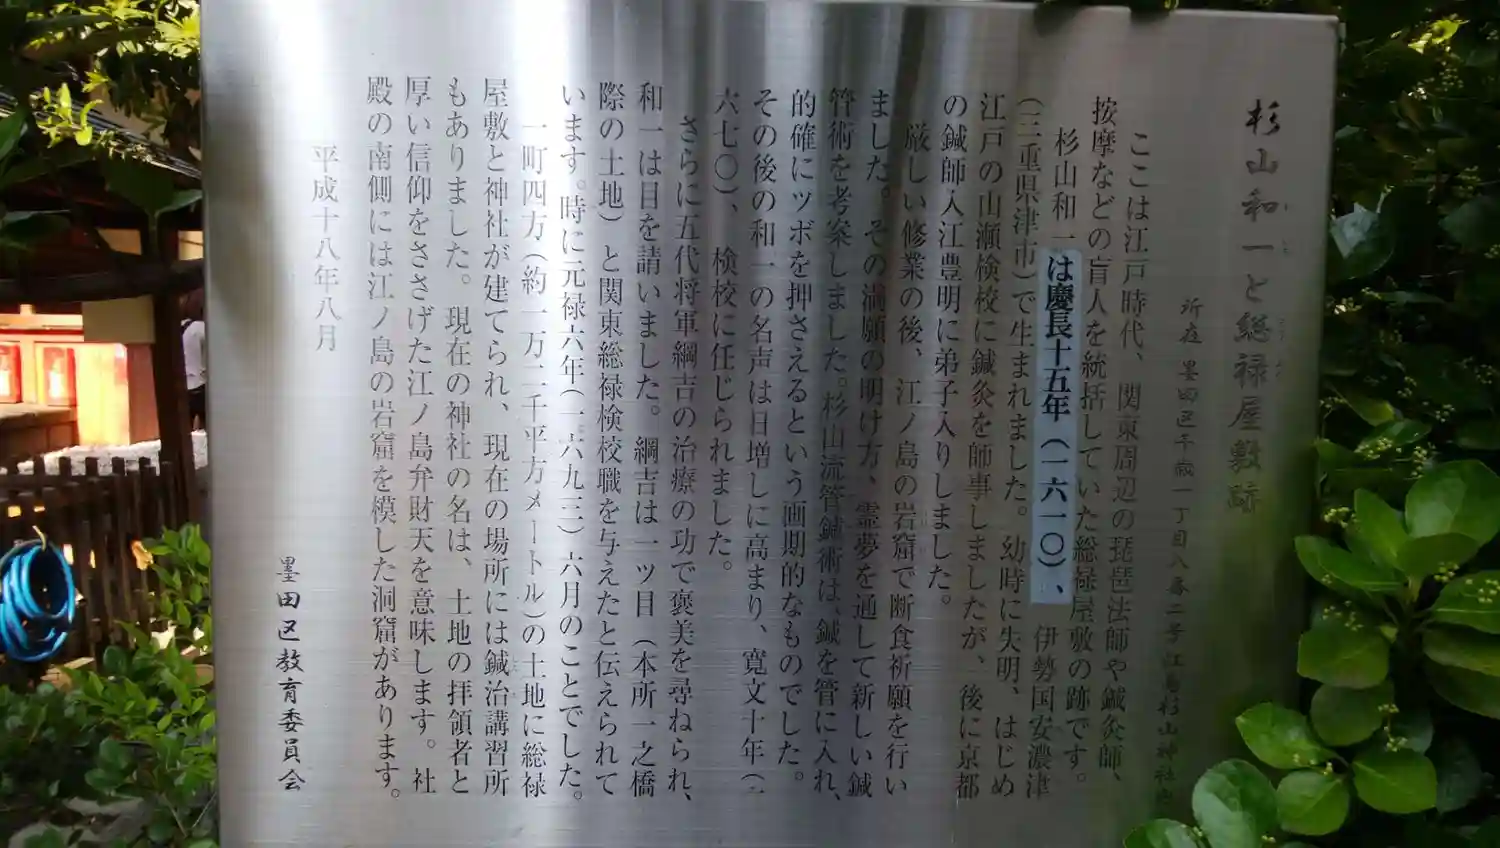 杉山和一と総禄屋敷跡
所在 墨田区千歳一丁目八番二号 江島杉山神社内
ここは江戸時代、関東周辺の琵琶法師や鍼灸師、
按摩などの盲人を統括していた総禄屋敷の跡です。
杉山和一は慶長十五年（一六一〇）、伊勢国安濃津
（三重県津市）で生まれました。幼時に失明、はじめ
江戸の山瀬検校に鍼灸を師事しましたが、後に京都
の鍼師入江豊明に弟子入りしました。
厳しい修業の後、江ノ島の岩窟で断食祈願を行い
ました。その満願の明け方、霊夢を通して新しい鍼
管術を考案しました。杉山流管鍼術は、鍼を管に入れ、
的確にツボを押さえるという画期的なものでした。
その後の和一の名声は日増しに高まり、寛文十年（一
六七〇）、検校に任じられました。
さらに五代将軍綱吉の治療の功で褒美を尋ねられ、
和一は目を請いました。綱吉は一ッ目（本所一之橋
際の土地）と関東総禄検校職を与えたと伝えられて
います。時に元禄六年（一六九三）六月のことでした。
一町四方（約一万二千平方メートル）の土地に総禄
屋敷と神社が建てられ、現在の場所には鍼治講習所
もありました。現在の神社の名は、土地の拝領者と
厚い信仰をささげた江ノ島弁財天を意味します。社
殿の南側には江ノ島の岩窟を模した洞窟があります。
平成十八年八月
墨田区教育委員会